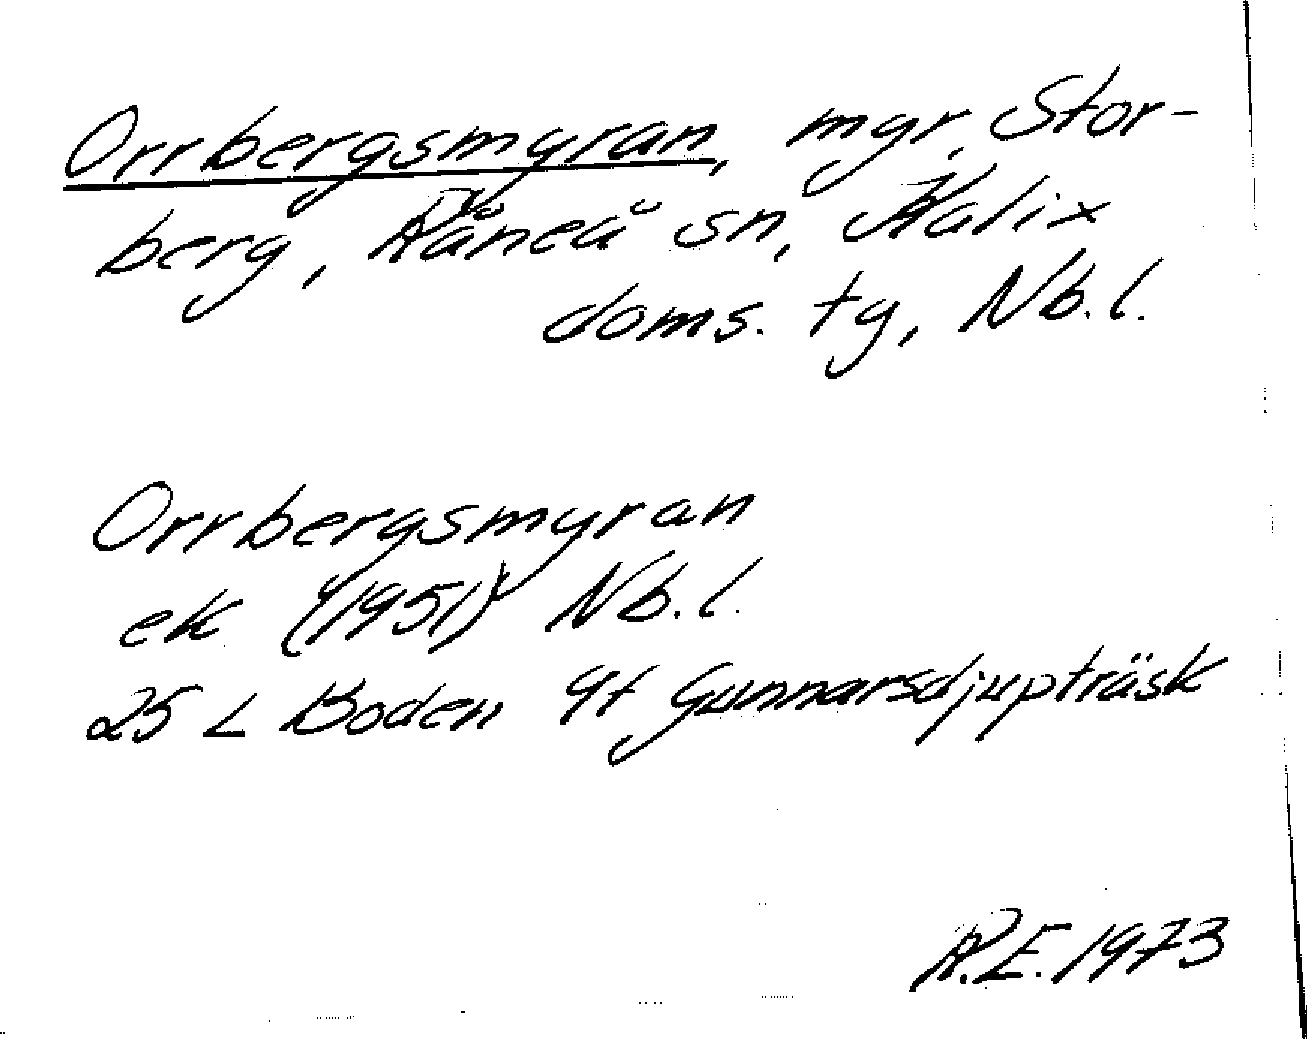 Orrbergsmyran, mgr, Stor-
berg, Råneå sn, Kalix
doms. tg, Nb.l.
Orrbergsmyran
ek (1951) Nb.l.
25 L Boden 9f Gunnarsdjupträsk
R.E. 1973